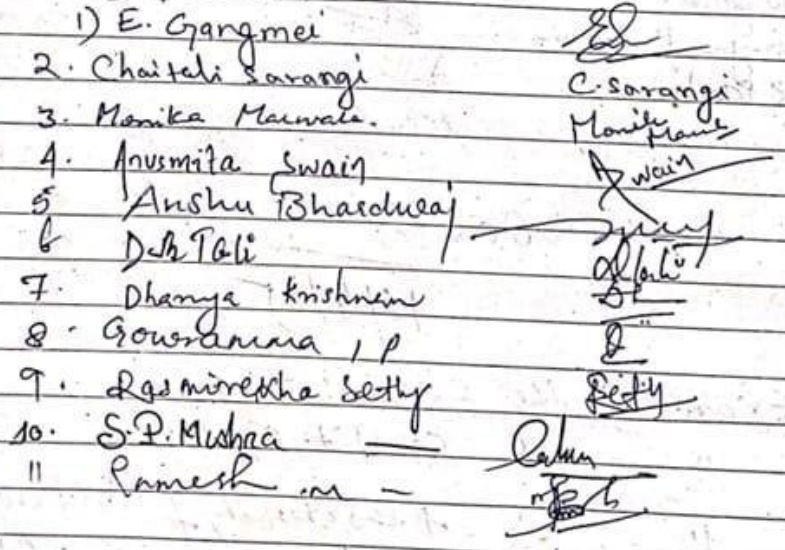 1) E. Gangmei
2. Chaitali Sarangi C. Sarangi
3. Monika
4. Anusmita Swain Swain
5 Anshu Bhardwaj
6
7. Dhanya Krishnan
8. Gowramma , P
9. Rasmirekha Sethy Sethy
10. S.P. Mishra
11 Ramesh .M -